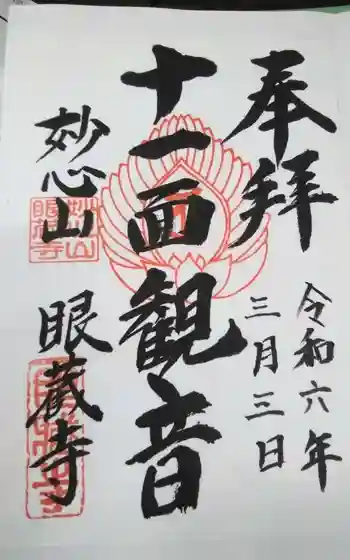 奉拝
令和六年
三月三日
十一面観音
妙心山
眼蔵寺